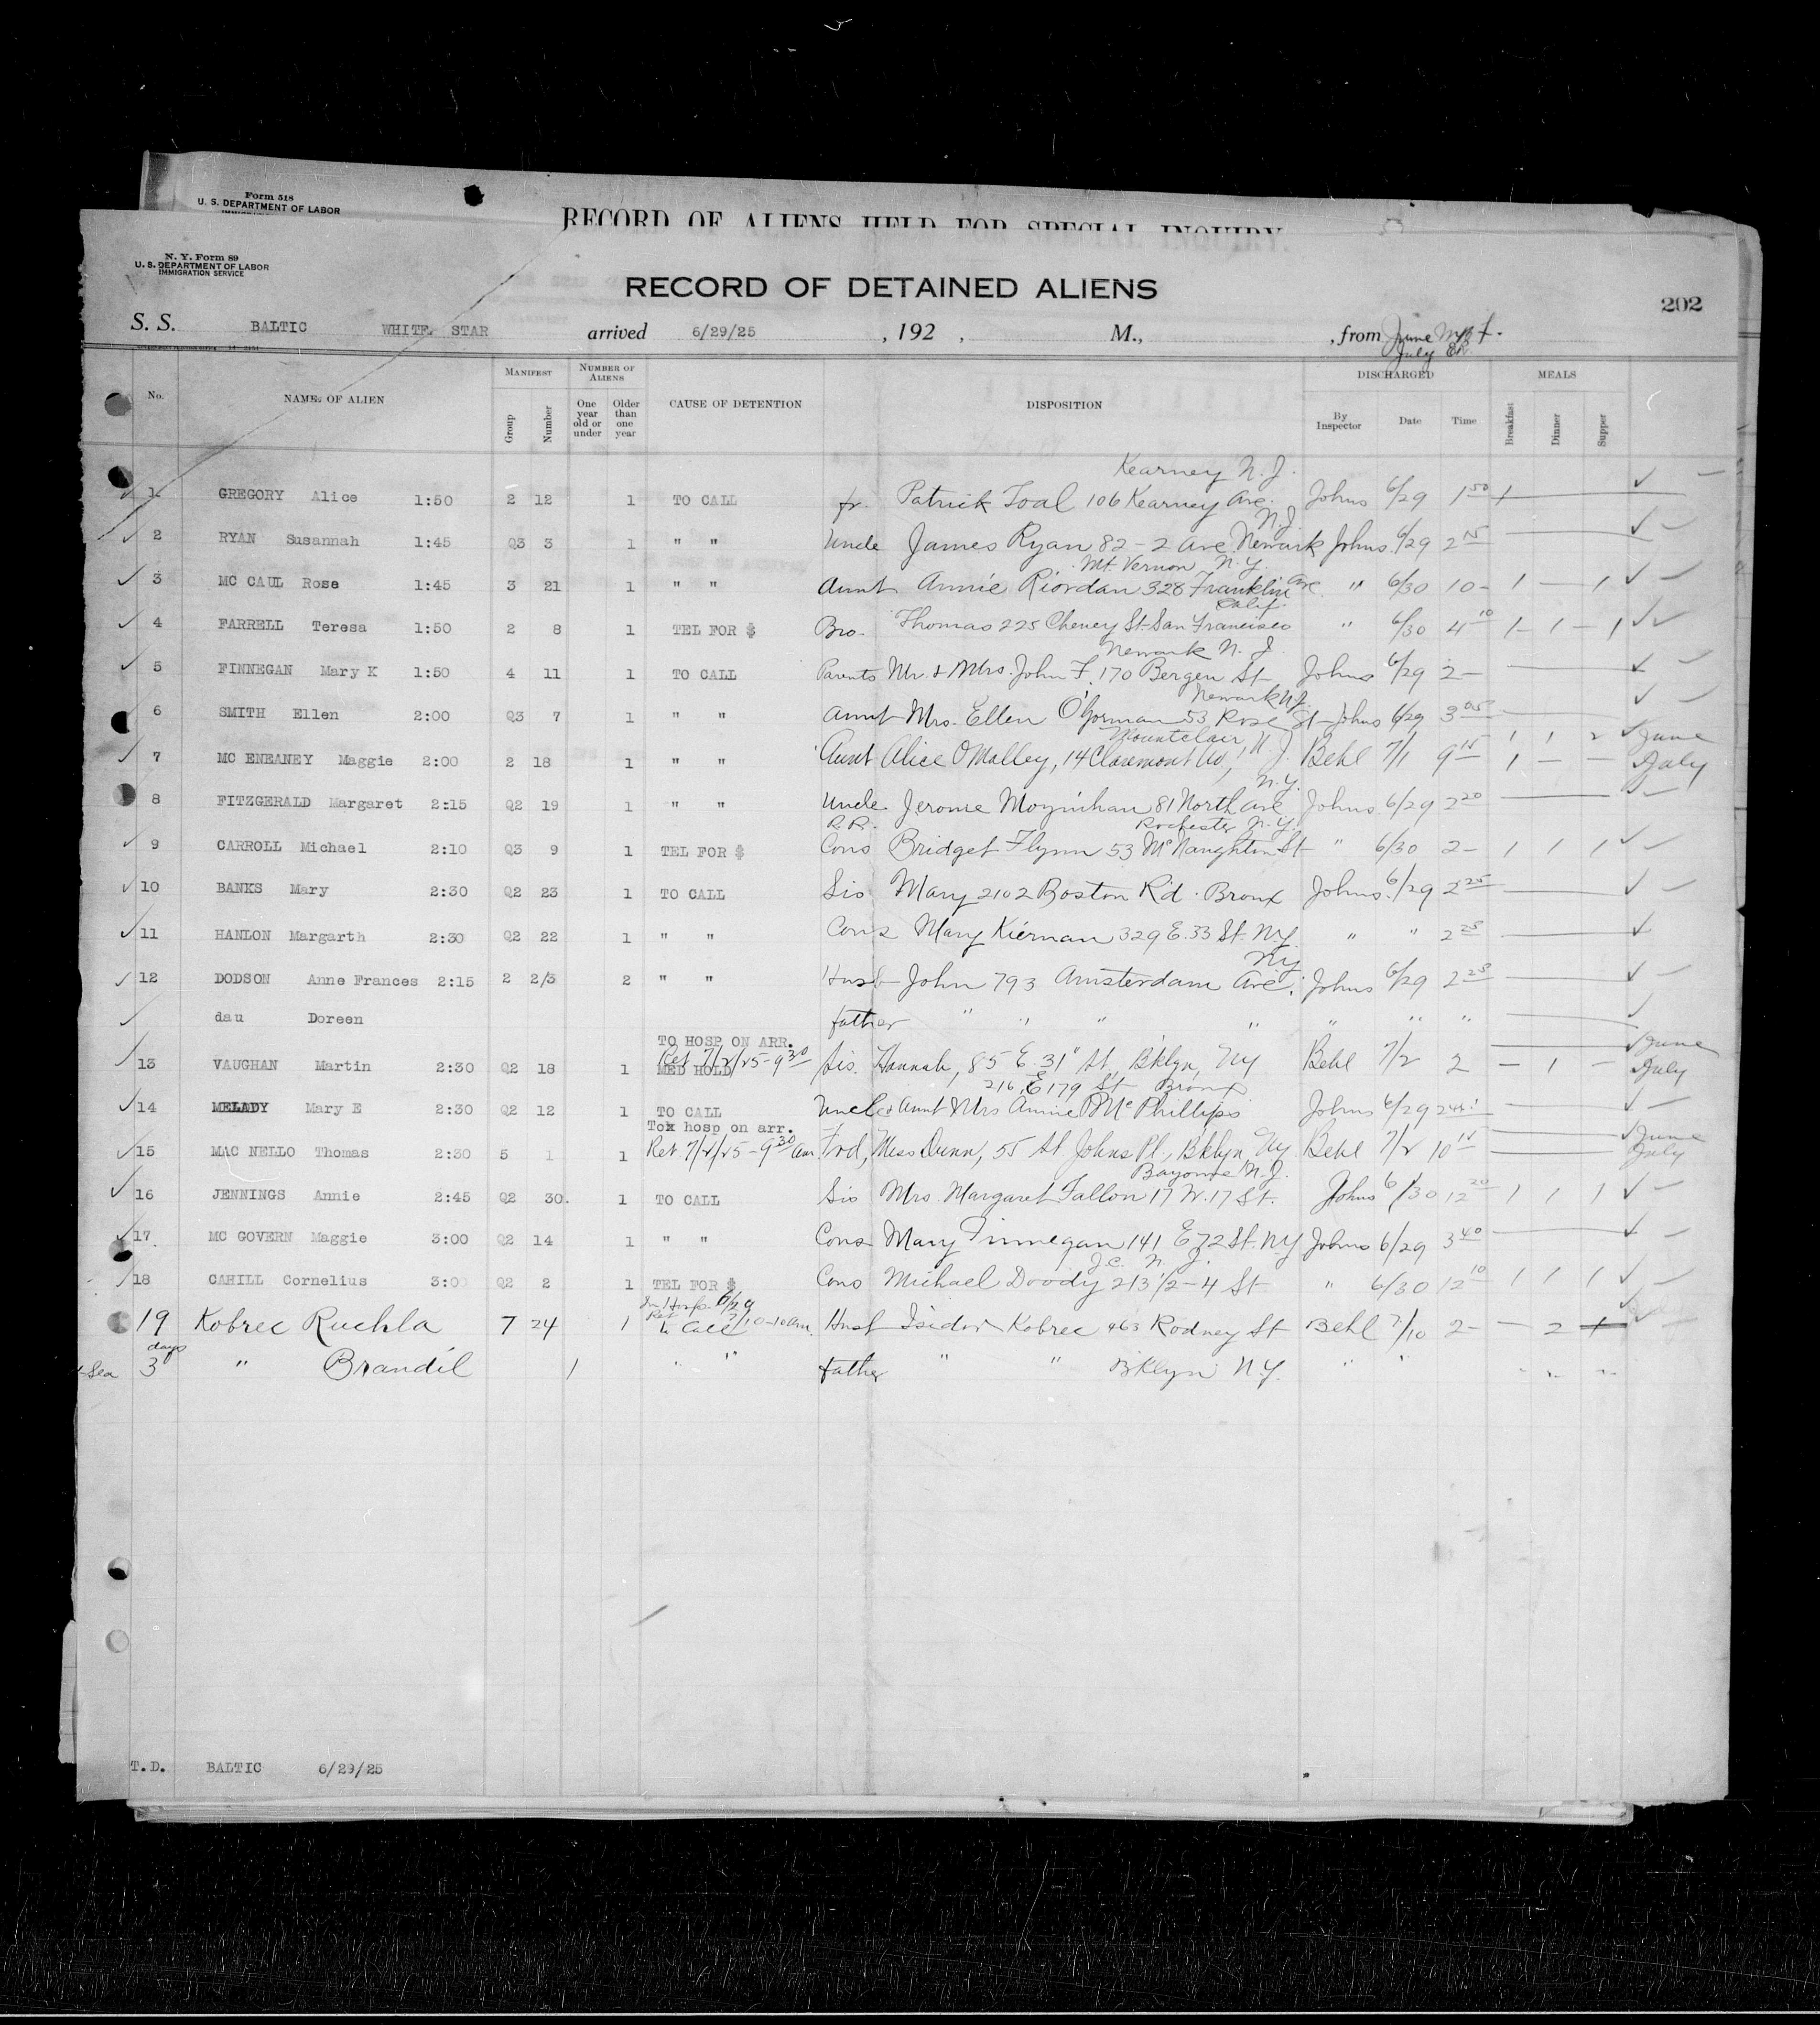 Form 518
U. S. DEPARTMENT OF LABOR
RECORD OF ALIENS HELD FOR SPECIAL INQUIRY.
N. Y. Form 89
U. S. DEPARTMENT OF LABOR
IMMIGRATION SERVICE
RECORD OF DETAINED ALIENS
202
S. S. BALTIC WHITE STAR arrived 6/29/25 , 192 , M., , from June
July
No. NAME OF ALIEN MANIFEST Group Number NUMBER OF ALIENS One year old or under Older than one year CAUSE OF DETENTION DISPOSITION DISCHARGED By Inspector Date Time MEALS Breakfast Dinner Supper
Kearney N. J.
1 GREGORY Alice 1:50 2 12 1 TO CALL fr. Patrick Toal 106 Kearney Ave. Johns 6/29 1 50
N. J.
2 RYAN Susannah 1:45 Q3 3 1 " " Uncle James Ryan 82 - 2 Ave Newark Johns. 6/29 2 15
Mt. Vernon N. Y.
3 MC CAUL Rose 1:45 3 21 1 " " Aunt Annie Riordan 328 Franklin Ave. " 6/30 10 - 1 — 1
Calif.
4 FARRELL Teresa 1:50 2 8 1 TEL FOR $ Bro. Thomas 225 Cheney St. San Francisco " 6/30 4 10 1 - 1 - 1
Newark N. J.
5 FINNEGAN Mary K 1:50 4 11 1 TO CALL Parents Mr. & Mrs. John F. 170 Bergen St Johns 6/29 2 -
Newark N.J.
6 SMITH Ellen 2:00 Q3 7 1 " " Aunt Mrs. Ellen O'Gorman 53 Rose St - Johns 6/29 3 05
Mountclair, N. J. 1 1 2 June
7 MC ENEANEY Maggie 2:00 2 18 1 " " Aunt Alice O'Malley, 14 Claremont Av, Behl 7/1 9 15 1 - - July
N. Y.
8 FITZGERALD Margaret 2:15 Q2 19 1 " " Uncle Jerome Moynihan 81 North Ave Johns. 6/29 2 20
R. R. Rochester N. Y.
9 CARROLL Michael 2:10 Q3 9 1 TEL FOR $ Cons Bridget Flynn 53 McNaughton St " 6/30 2 - 1 1 1
10 BANKS Mary 2:30 Q2 23 1 TO CALL Sis Mary 2102 Boston R'd. Bronx Johns. 6/29 2 25
11 HANLON Margarth 2:30 Q2 22 1 " " Cons Mary Kiernan 329 E. 33 St. N.Y. " " 2 25
N.Y.
12 DODSON Anne Frances 2:15 2 2/3 2 " " Husb John 793 Amsterdam Ave. Johns 6/29 2 25
dau Doreen father " " " " " " "
TO HOSP ON ARR. June
13 VAUGHAN Martin 2:30 Q2 18 1 MED HOLD Ret 7/2/25 - 9 30 Sis. Hannah, 85 E 31" St, Bklyn, NY Behl 7/2 2 - 1 - July
216 E 179 St Bronx
14 MELADY Mary E 2:30 Q2 12 1 TO CALL Uncle & Aunt Mrs Annie McPhillips Johns 6/29
Tox hosp on arr. June
15 MAC NELLO Thomas 2:30 5 1 1 Ret 7/2/25 - 9 30 am Frd, Miss Dunn, 55 St. Johns Pl., Bklyn, NY Behl 7/2 10 15 July
Bayonne N. J.
16 JENNINGS Annie 2:45 Q2 30. 1 TO CALL Sis Mrs. Margaret Fallon 17 W. 17 St. Johns 6/30 12 20 1 1 1
17. MC GOVERN Maggie 3:00 Q2 14 1 " " Cons Mary Finnegan 141 E 72 St. N.Y Johns 6/29 3 40
J. C. N. J.
18 CAHILL Cornelius 3:00 Q2 2 1 TEL FOR $ Cons Michael Doody 213 1/2 - 4 St " 6/30 12 10 1 1 1
In Hosp. 6/29
19 Kobrec Ruchla 7 24 1 Ret 7/10 - 10 am. to Call Husb Isidor Kobrec 463 Rodney St Behl 7/10 2 - - 2
days
Sea 3 " Brandil 1 " " father " " Bklyn N. Y. " "
T.D. BALTIC 6/29/25